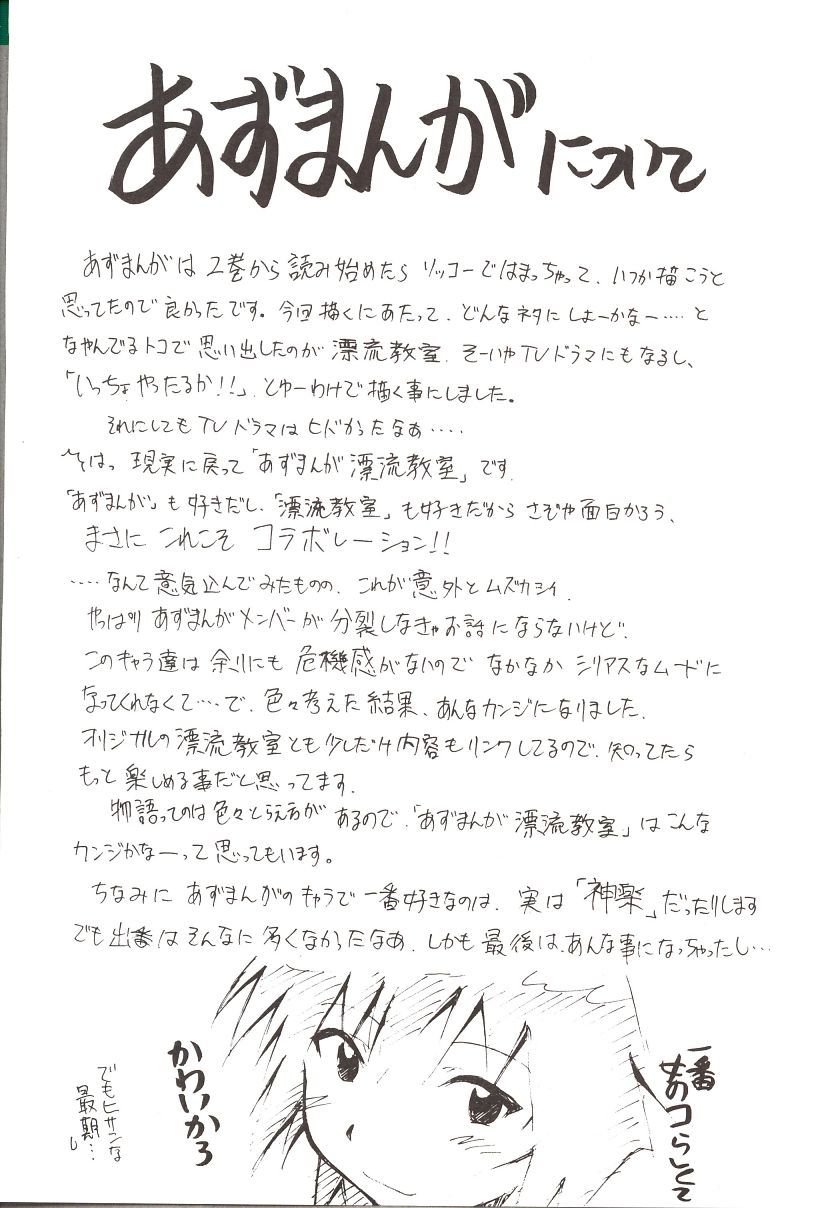 あずまんがについて
あずまんがは2巻から読み始めたらソッコーではまっちゃって、いつか描こうと
思ってたので良かったです。今回描くにあたって、どんなネタにしよーかなー‥‥と
なやんでるトコで思い出したのが漂流教室、そーいやTVドラマにもなるし、
「いっちょやったるか!!」とゆーわけで描く事にしました。
それにしてもTVドラマはヒドかったなぁ‥‥
現実に戻って「あずまんが漂流教室」です。
「あずまんが」も好きだし、「漂流教室」も好きだからさぞや面白かろう、
まさにこれこそコラボレーション!!
‥‥なんて意気込んでみたものの、これが意外とムズカシイ。
やっぱりあずまんがメンバーが分裂しなきゃお話にならないけど、
このキャラ達は余りにも危機感がないのでなかなかシリアスなムードに
なってくれなくて‥‥で、色々考えた結果、あんなカンジになりました。
オリジナルの漂流教室とも少しだけ内容もリンクしてるので、知ってたら
もっと楽しめる事だと思ってます。
物語ってのは色々とらえ方があるので、「あずまんが漂流教室」はこんな
カンジかなーって思ってもいます。
ちなみにあずまんがのキャラで一番好きなのは、実は「神楽」だったりします
でも出番はそんなに多くなかったなぁ、しかも最後は、あんな事になっちゃったし…
一番
女のコらしくて
かわいかろ
でもヒサンな
最期…